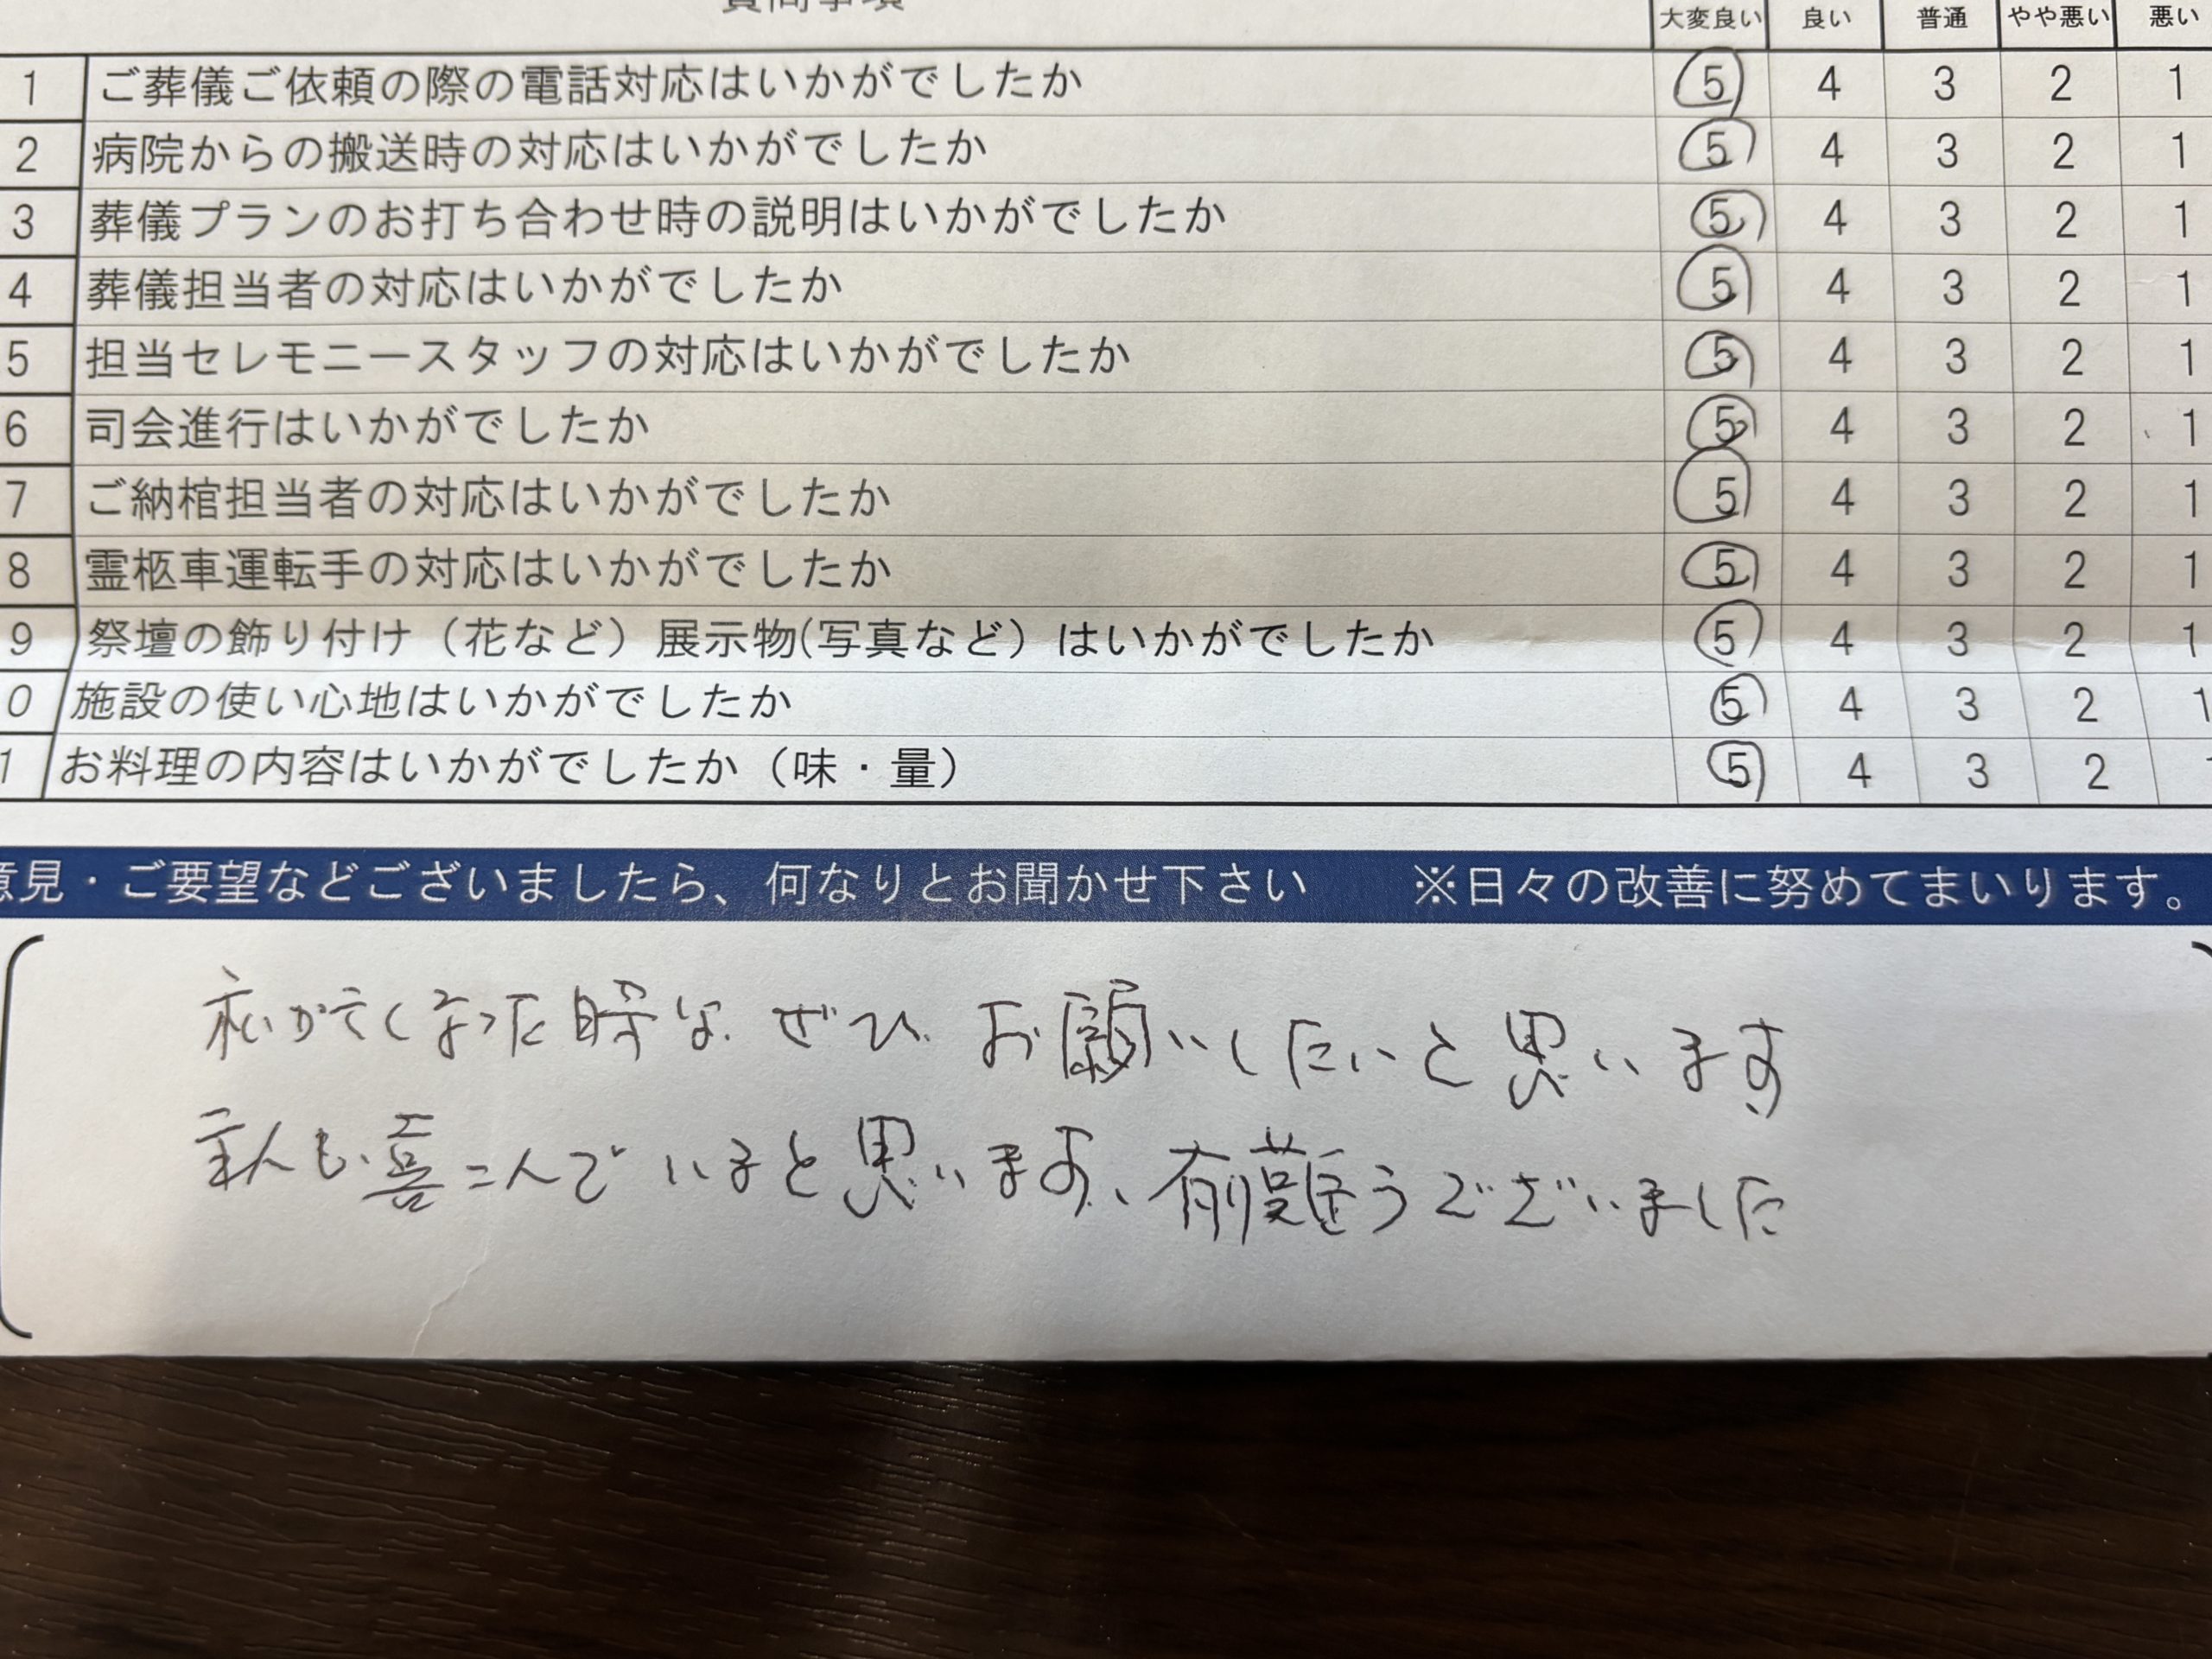 質問事項 大変良い 良い 普通 やや悪い 悪い
1 ご葬儀ご依頼の際の電話対応はいかがでしたか 5 4 3 2 1
2 病院からの搬送時の対応はいかがでしたか 5 4 3 2 1
3 葬儀プランのお打ち合わせ時の説明はいかがでしたか 5 4 3 2 1
4 葬儀担当者の対応はいかがでしたか 5 4 3 2 1
5 担当セレモニースタッフの対応はいかがでしたか 5 4 3 2 1
6 司会進行はいかがでしたか 5 4 3 2 1
7 ご納棺担当者の対応はいかがでしたか 5 4 3 2 1
8 霊柩車運転手の対応はいかがでしたか 5 4 3 2 1
9 祭壇の飾り付け（花など）展示物(写真など）はいかがでしたか 5 4 3 2 1
0 施設の使い心地はいかがでしたか 5 4 3 2 1
1 お料理の内容はいかがでしたか（味・量） 5 4 3 2
意見・ご要望などございましたら、何なりとお聞かせ下さい ※日々の改善に努めてまいります。
私が亡くなった時は、ぜひ、お願いしたいと思います
主人も喜こんでいると思います、有難うございました